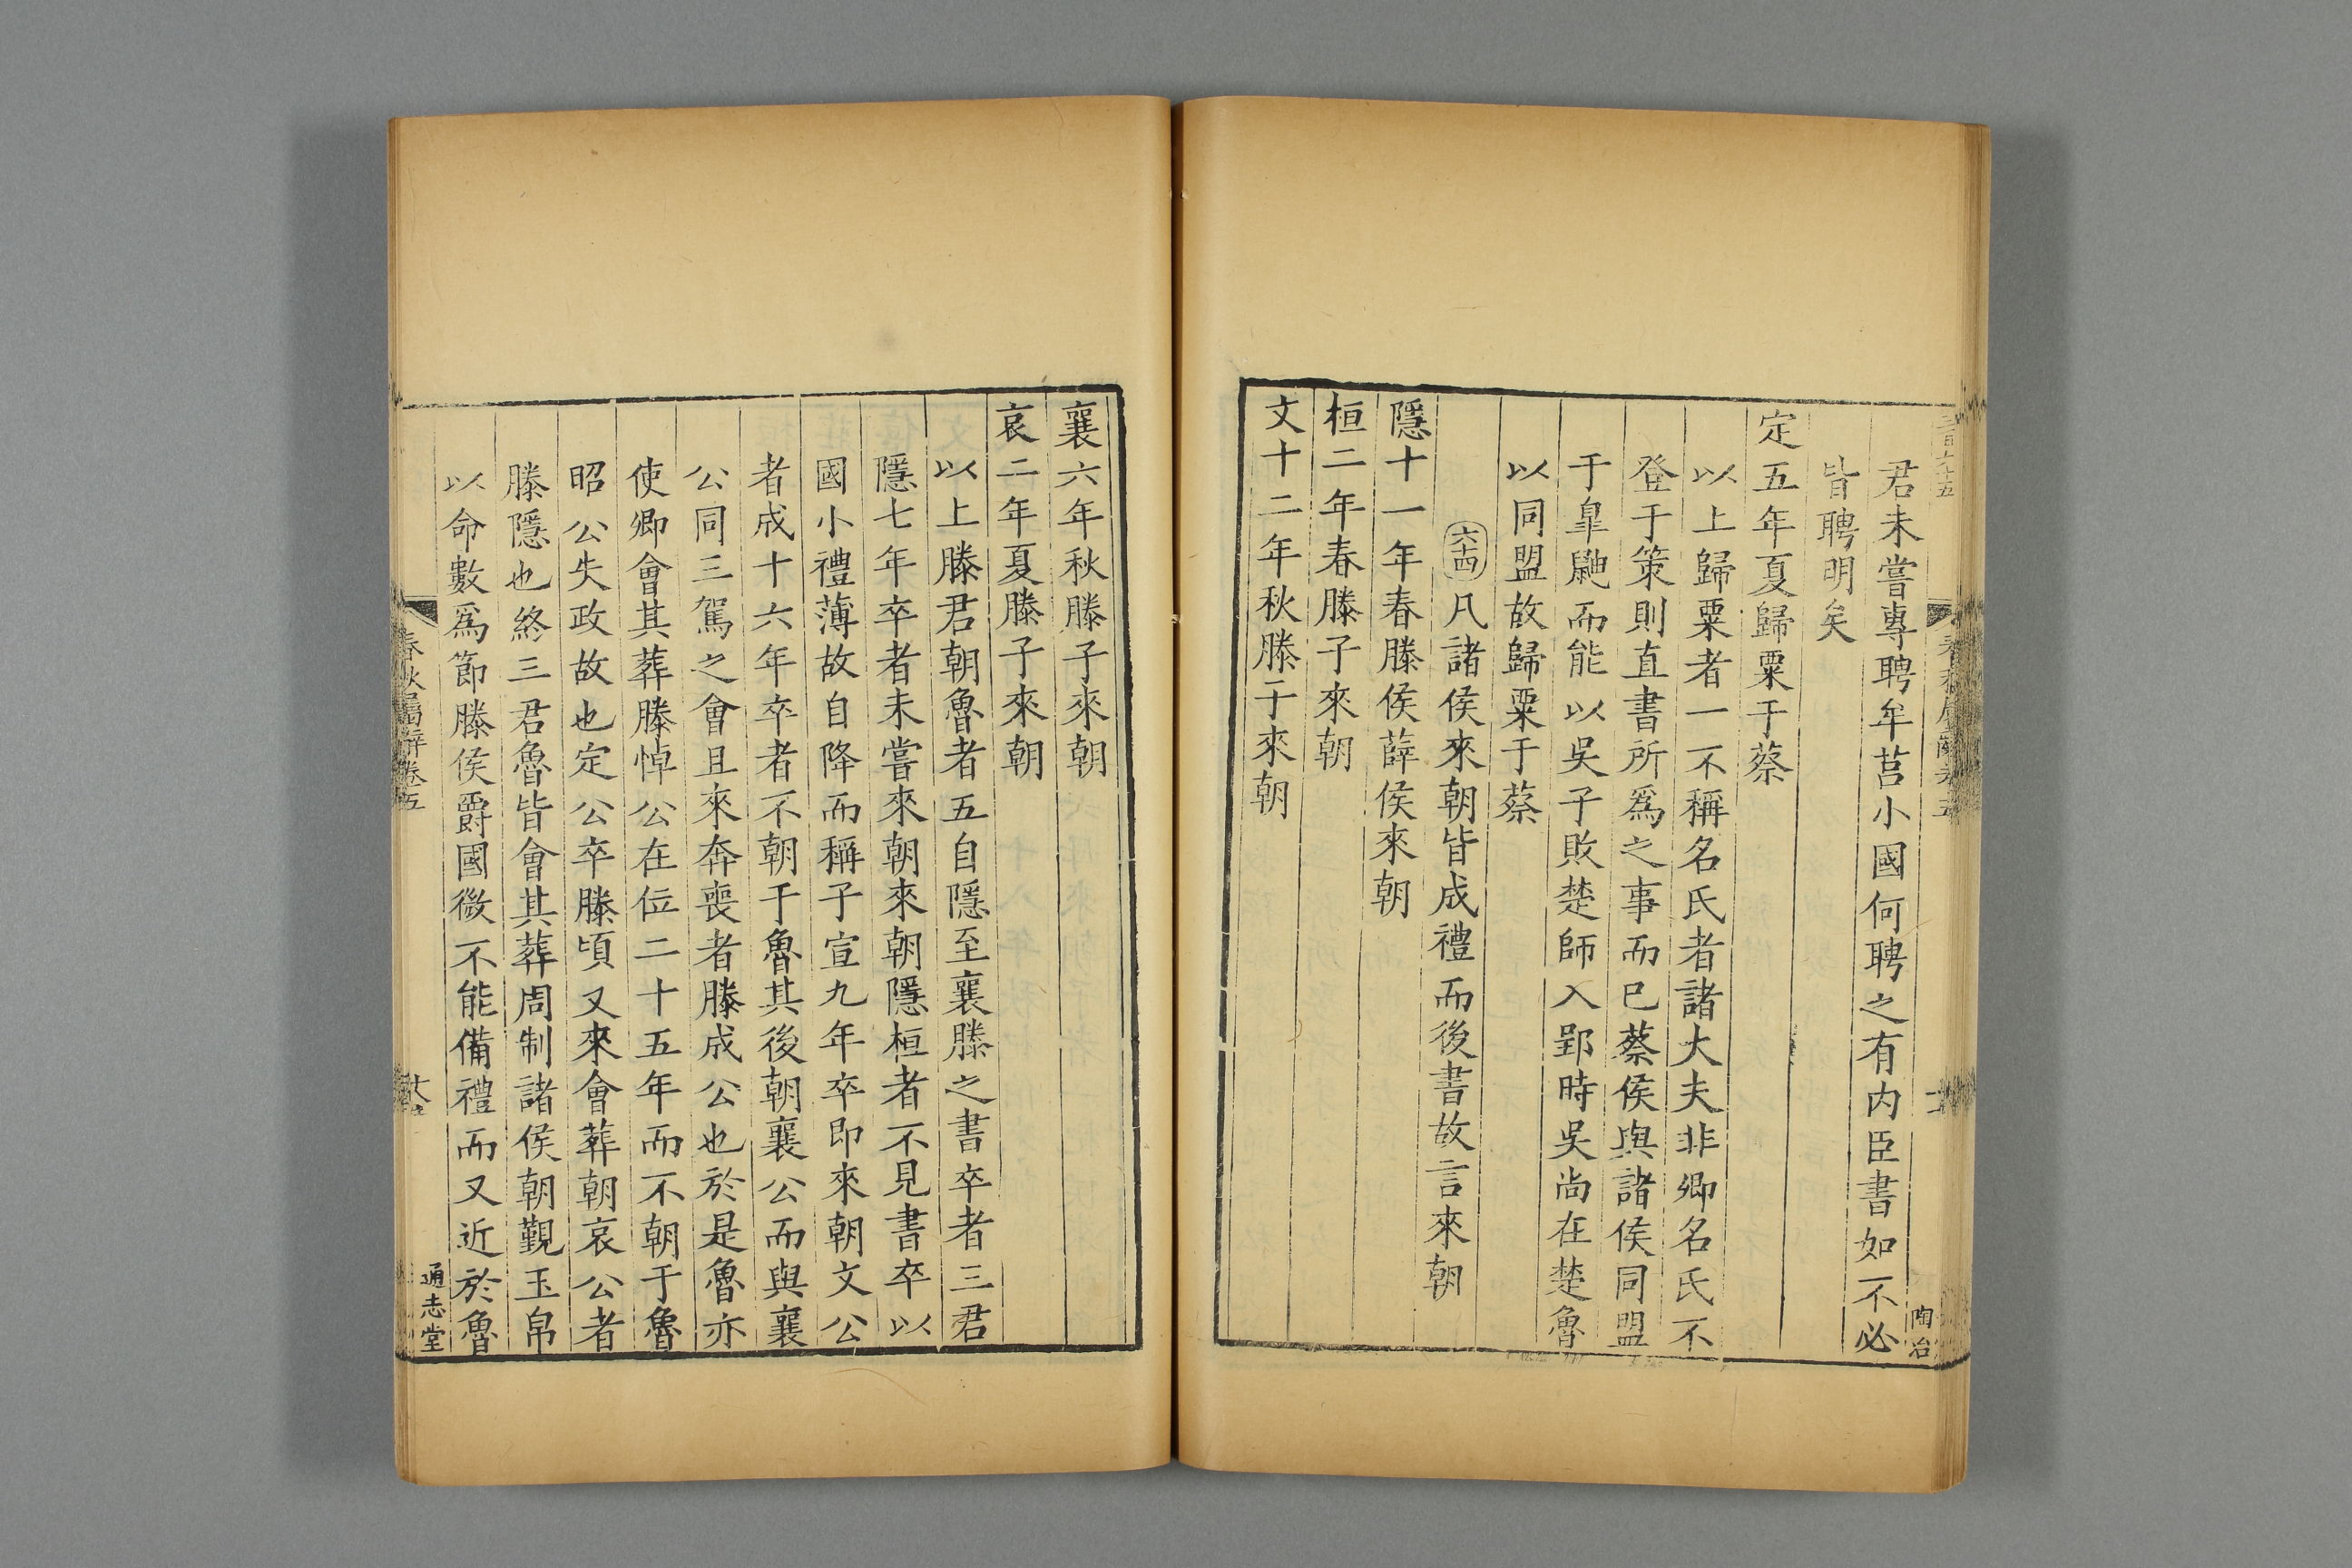 君未嘗專聘牟莒小國何聘之有内臣書如不必
皆聘明矣
定五年夏歸粟于蔡
以上歸粟者一不稱名氏者諸大夫非卿名氏不
登于策則直書所爲之事而已蔡侯與諸侯同盟
于臯鼬而能以吳子敗楚師入郢時吳尚在楚魯
以同盟故歸粟于蔡
六十四 凡諸侯來朝皆成禮而後書故言來朝
隱十一年春滕侯薛侯來朝
桓二年春滕子來朝
文十二年秋滕子來朝
陶冶
襄六年秋滕子來朝
哀二年夏滕子來朝
以上滕君朝魯者五自隱至襄滕之書卒者三君
隱七年卒者未嘗來朝來朝隱桓者不見書卒以
國小禮薄故自降而稱子宣九年卒即來朝文公
者成十六年卒者不朝于魯其後朝襄公而與襄
公同三駕之會且來奔喪者滕成公也於是魯亦
使卿會其葬滕悼公在位二十五年而不朝于魯
昭公失政故也定公卒滕頃又來會葬朝哀公者
滕隱也終三君魯皆會其葬周制諸侯朝覲玉帛
以命數爲節滕侯爵國微不能備禮而又近於魯
春秋屬辭卷五
通志堂